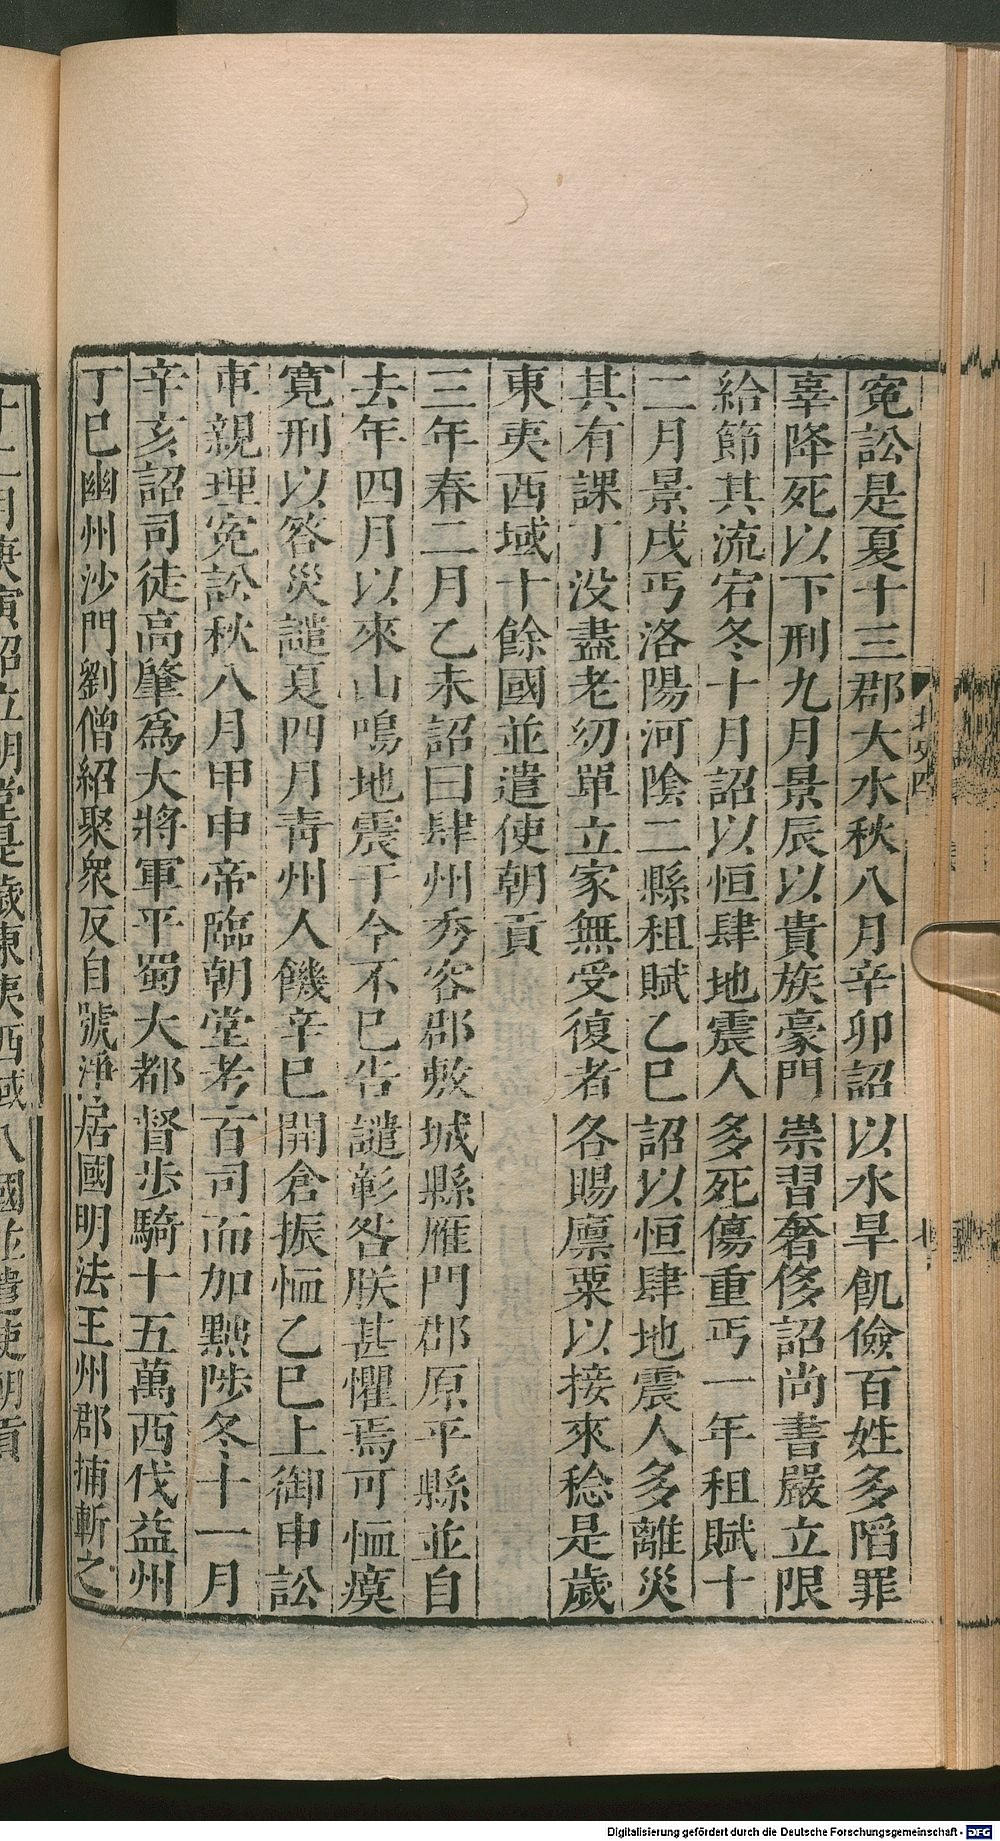 冤訟是夏十三郡大水秋八月辛卯詔以水旱飢儉百姓多䧟罪
辜降死以下刑九月景辰以貴族豪門崇習奢侈詔尚書嚴立限
給節其流宕冬十月詔以恒肆地震人多死傷重丐一年租賦十
二月景戌丐洛陽河陰二縣租賦乙巳詔以恒肆地震人多離災
其有課丁没盡老㓜單立家無受復者各賜廪粟以接來稔是歲
東夷西域十餘國並遣使朝貢
三年春二月乙未詔曰肆州秀容郡敷城縣雁門郡原平縣並自
去年四月以來山鳴地震于今不已告譴彰咎朕甚懼焉可恤瘼
寛刑以答災譴夏四月青州人饑辛巳開倉振恤乙巳上御申訟
車親理冤訟秋八月甲申帝臨朝堂考百司而加黜陟冬十一月
辛亥詔司徒高肇爲大將軍平蜀大都督步騎十五萬西伐益州
丁巳幽州沙門劉僧紹聚衆反自號淨居國明法王州郡捕斬之
十二月庚寅詔立明堂是歲東夷西域八國並遣使朝貢
北史四